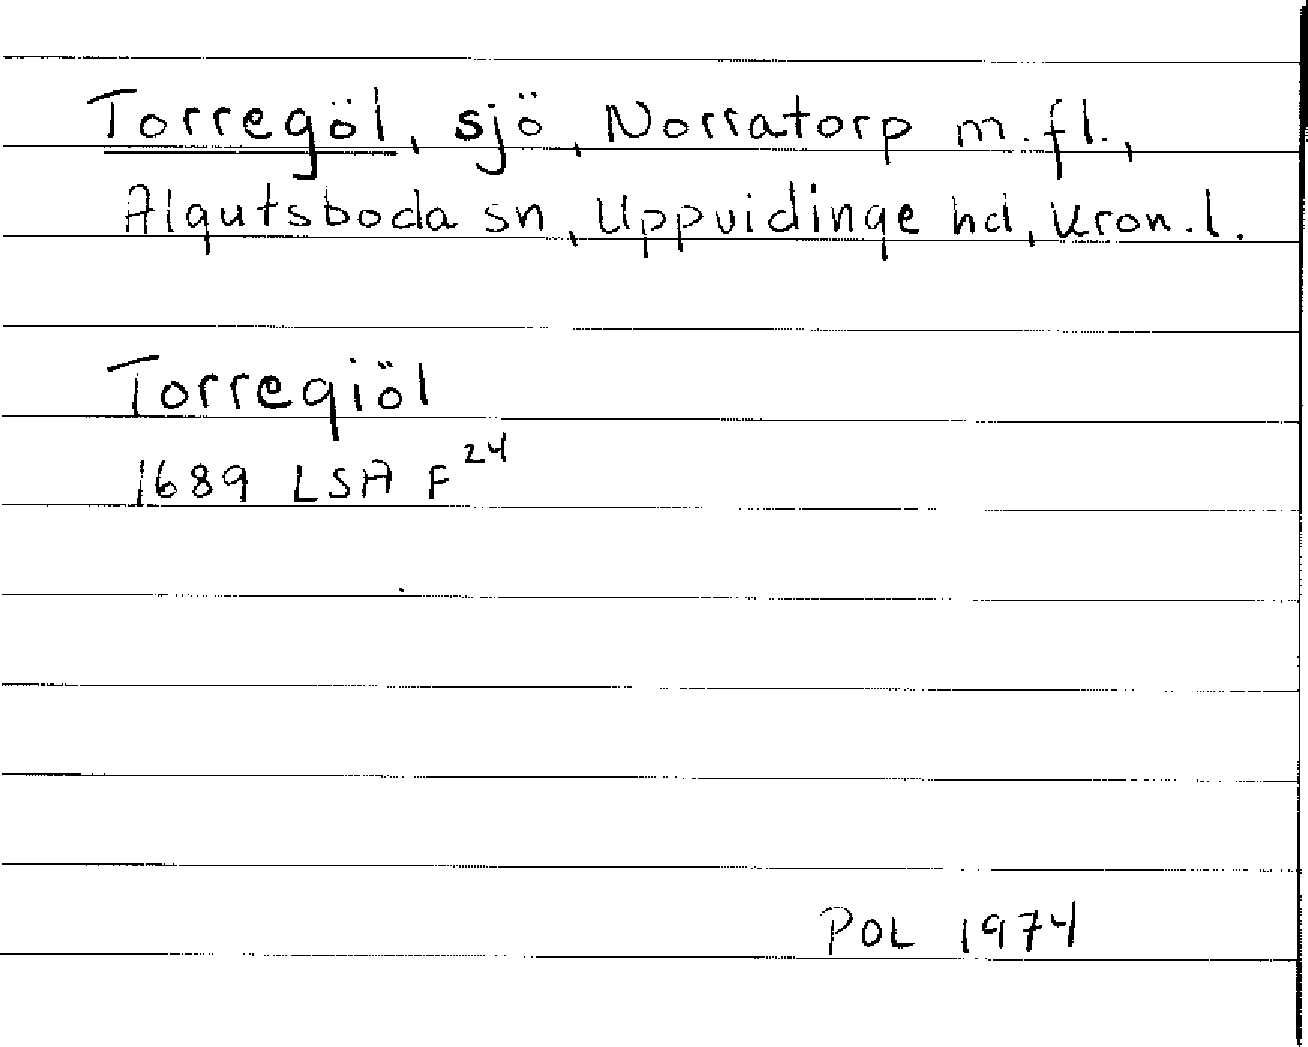 Torregöl, sjö, Norratorp m.fl.,
Algutsboda sn, Uppvidinge hd, Kron.l.
Torregiöl
1689 LSA F²⁴
POL 1974